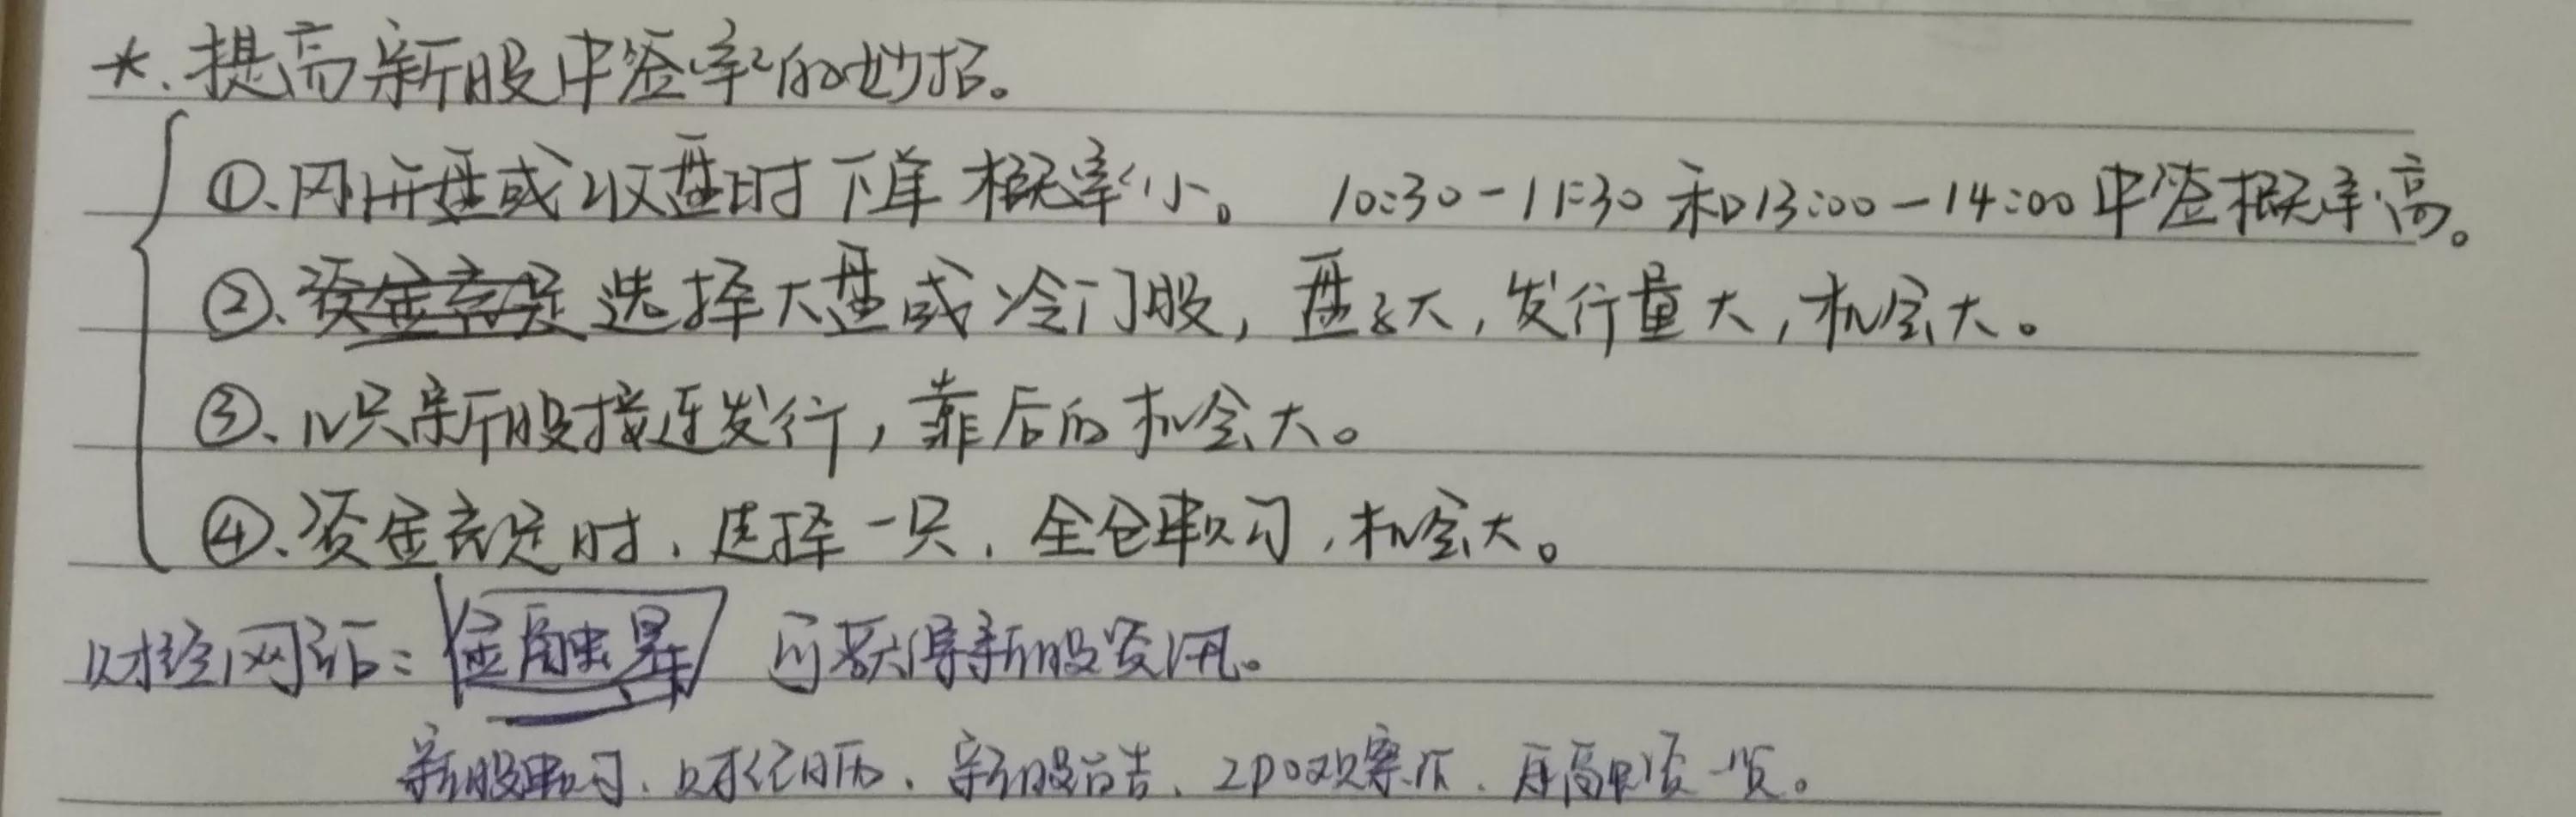 *. 提高新股中签率的妙招。
①、刚开盘或收盘时下单概率小。 10:30-11:30和13:00-14:00中签概率高。
②、资金充足 选择大盘或冷门股，盘子大，发行量大，机会大。
③、几只新股接连发行，靠后的机会大。
④、资金充足时，选择一只，全仓申购，机会大。
财经网站：金融界 可获得新股资讯。
新股申购、财经日历、新股公告、IPO观察